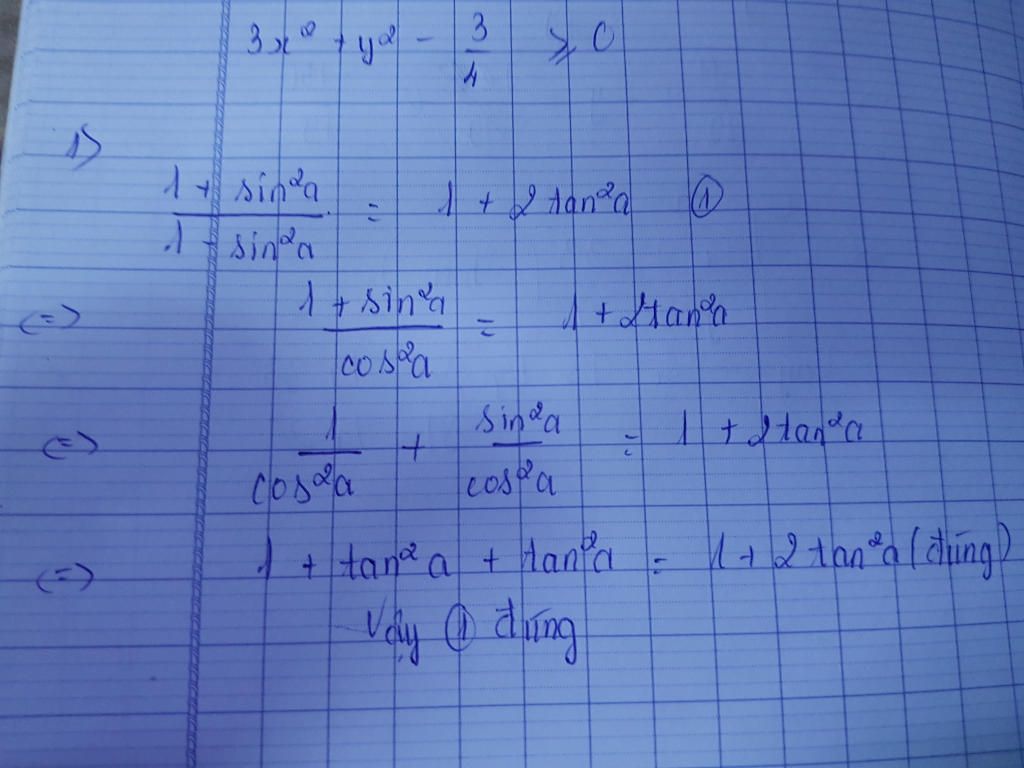 3x² + y² - 3/4 ≥ 0
1)
(1 + sin²a)/(1 - sin²a) = 1 + 2tan²a ①
<=> (1 + sin²a)/(cos²a) = 1 + 2tan²a
<=> 1/(cos²a) + (sin²a)/(cos²a) = 1 + 2tan²a
<=> 1 + tan²a + tan²a = 1 + 2tan²a (đúng)
Vậy ① đúng